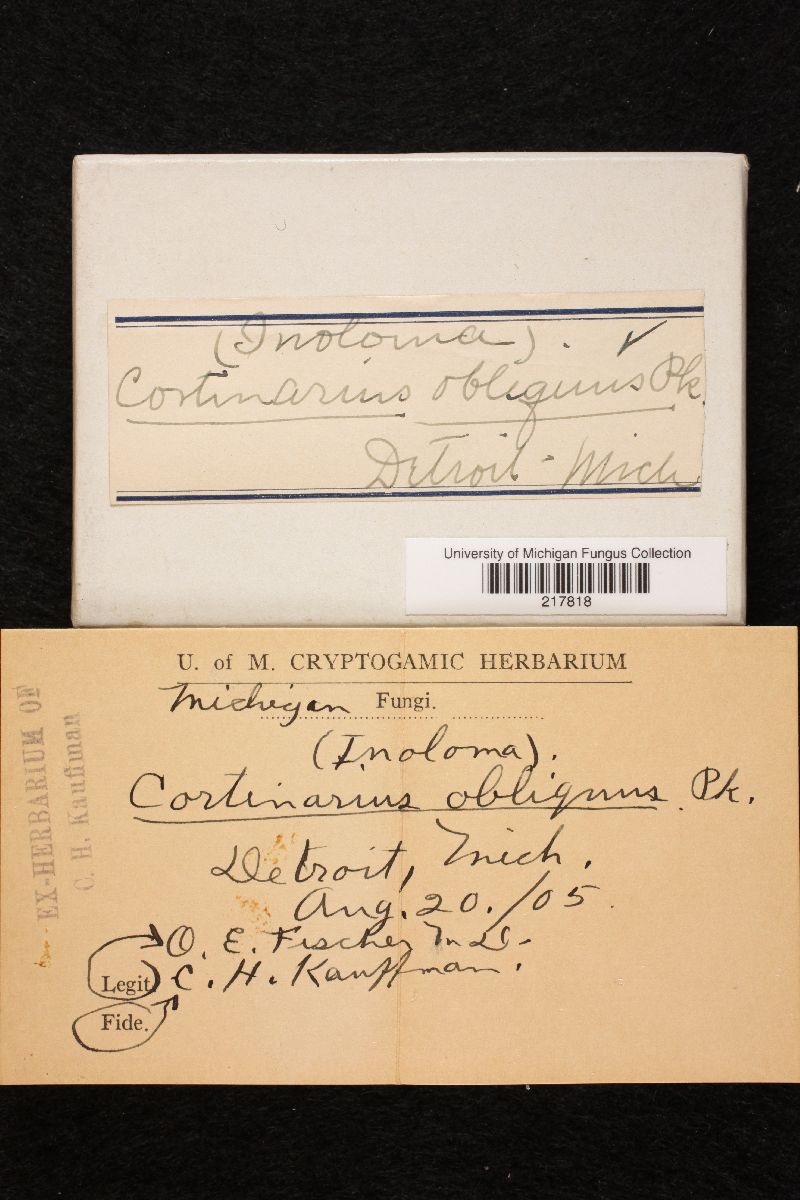 (Inoloma). ✓
Cortinarius obliquus Pk.
Detroit - Mich
University of Michigan Fungus Collection
217818
U. of M. CRYPTOGAMIC HERBARIUM
Michigan Fungi.
(Inoloma).
Cortinarius obliquus Pk.
Detroit, Mich.
Aug. 20./05.
O. E. Fischer M.D.
Legit. C. H. Kauffman.
Fide.
EX-HERBARIUM OF
C. H. Kauffman